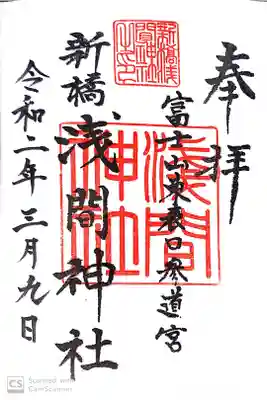 奉拝
富士山東表口参道宮
新橋
浅間神社
令和二年三月九日
淺間
神社
CS Scanned with
CamScanner